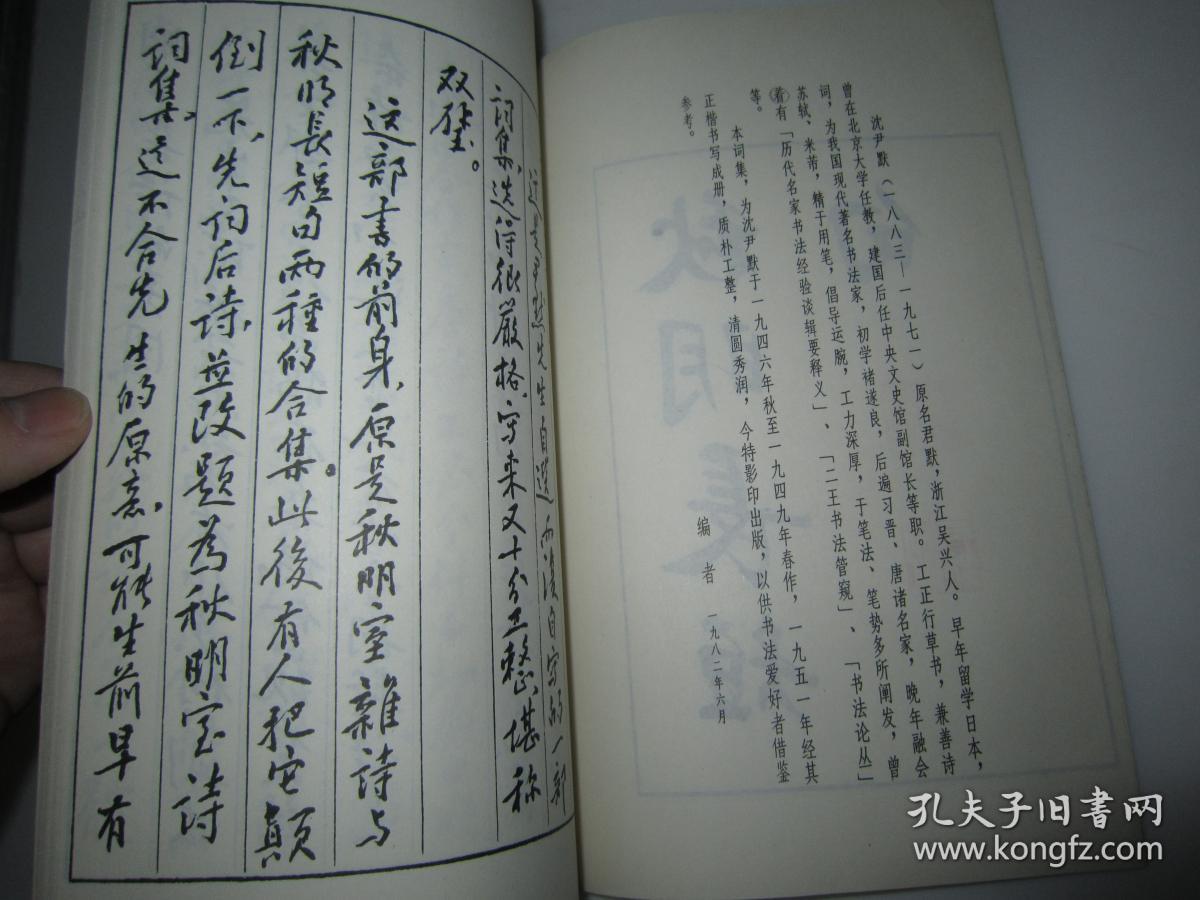 沈尹默（一八八三—一九七一）原名君默，浙江吴兴人。早年留学日本，
曾在北京大学任教，建国后任中央文史馆副馆长等职。工正行草书，兼善诗
词，为我国现代著名书法家，初学褚遂良，后遍习晋、唐诸名家，晚年融会
苏轼、米芾，精于用笔，倡导运腕，工力深厚，于笔法、笔势多所阐发，曾
着有「历代名家书法经验谈辑要释义」、「二王书法管窥」、「书法论丛」
等。
本词集，为沈尹默于一九四六年秋至一九四九年春作，一九五一年经其
正楷书写成册，质朴工整，清圆秀润，今特影印出版，以供书法爱好者借鉴
参考。
编者 一九八二年六月
秋明長短
这是尹默先生自選而復自写的一部
词集，选得很嚴格，写来又十分工整，堪称
双璧。
这部书的前身，原是秋明室雜诗与
秋明長短句两種的合集。此後有人把它颠
倒一下，先词后诗，並改题為秋明室诗
词集，这不合先生的原意，可能生前早有
孔夫子旧书网
www.kongfz.com